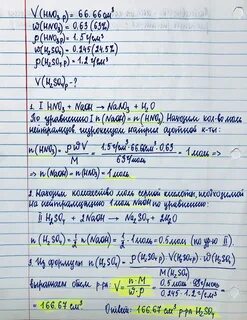 V(HNO₃ р) = 66.66 см³
ω(HNO₃) = 0.63 (63%)
ρ(HNO₃ р) = 1.5 г/см³
ω(H₂SO₄) = 0.245 (24.5%)
ρ(H₂SO₄ р) = 1.2 г/см³
V(H₂SO₄)р - ?
1. I HNO₃ + NaOH → NaNO₃ + H₂O
По уравнению I n(HNO₃) = n(NaOH) Находим кол-во моль
нейтрализ. гидроксидом натрия азотной к-ты:
n(HNO₃) = ρωV/M = 1.5 г/см³ · 66.66 см³ · 0.63 / 63 г/моль = 1 моль =>
=> n(NaOH) = n(HNO₃) = 1 моль
2. Находим количество моль серной кислоты, необходимой
на нейтрализацию 1 моль NaOH по уравнению:
II H₂SO₄ + 2NaOH → Na₂SO₄ + 2H₂O
n(H₂SO₄) = 1/2 n(NaOH) = 1/2 · 1 моль = 0.5 моль (по ур-ю II).
3. Из формулы n(H₂SO₄) = ρ(H₂SO₄ р) · V(H₂SO₄ р) · ω(H₂SO₄) / M(H₂SO₄)
выражаем объём р-ра: V = n·M / ω·ρ = 0.5 моль · 98 г/моль / 0.245 · 1.2 г/см³ =
= 166.67 см³ Ответ: 166.67 см³ р-ра H₂SO₄